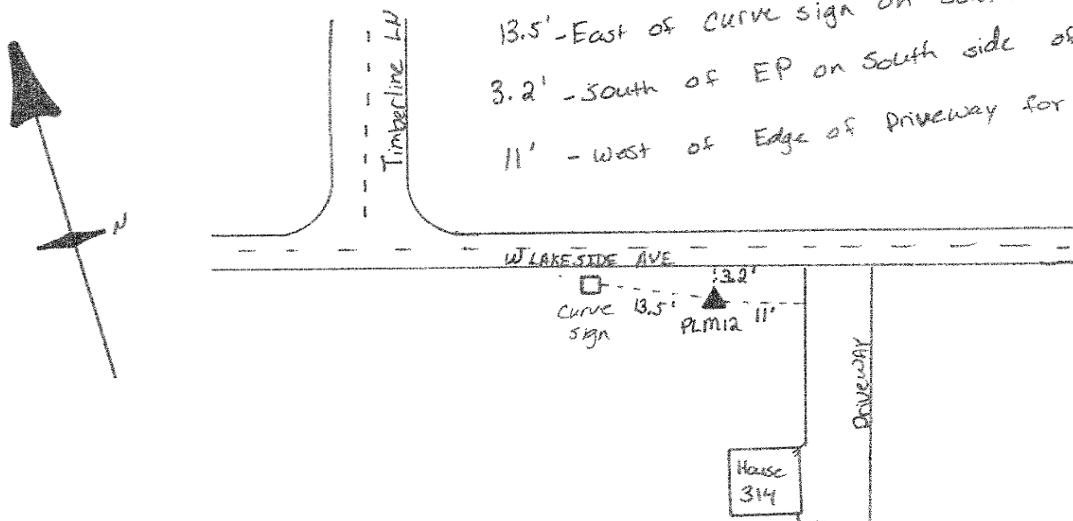 13.5' - East of Curve sign on
3.2' - South of EP on South side of
11' - West of Edge of Driveway for
Timberline LN
N
W LAKESIDE AVE
3.2'
13.5'
11'
Curve
sign
PLM12
Driveway
House
314